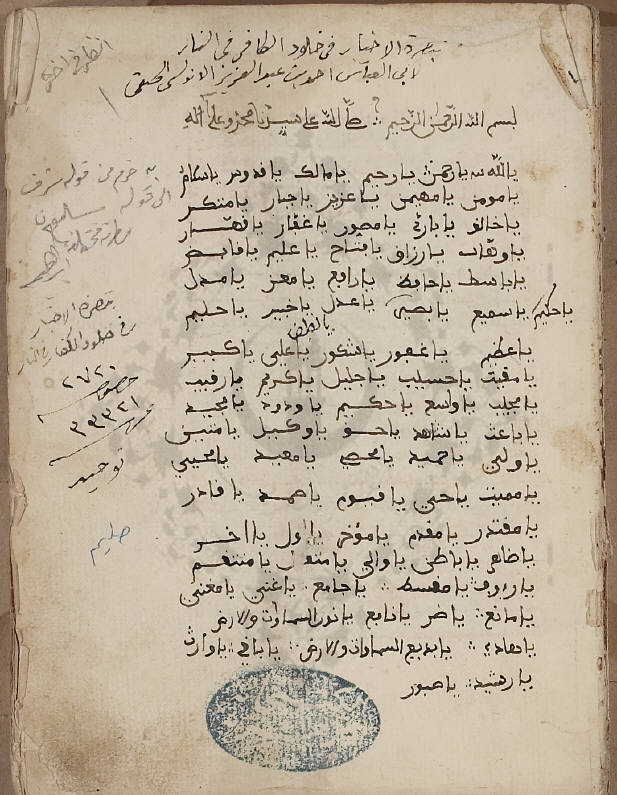 تبصرة الاخيار في خلود الكافر في النار
لابي العباس احمد بن عبد العزيز الاندلسي الحنفي
بسم الله الرحمن الرحيم صلى الله على سيدنا محمد وعلى آله
يا الله يا رحمن يا رحيم يا مالك يا قدوس يا سلام
يا مومن يا مهيمن يا عزيز يا جبار يا متكبر
يا خالق يا بارئ يا مصور يا غفار يا قهار
يا وهاب يا رزاق يا فتاح يا عليم يا قابض
يا باسط يا حافظ يا رافع يا معز يا مذل
يا حكيم يا سميع يا بصير يا عدل يا خبير يا حليم
يا لطيف
يا عظيم يا غفور يا شكور يا علي يا كبير
يا مقيت يا حسيب يا جليل يا كريم يا رقيب
يا مجيب يا واسع يا حكيم يا ودود يا مجيد
يا باعث يا شاهد يا حق يا وكيل يا متين
يا ولي يا حميد يا محصي يا معيد يا محيي
يا مميت يا حي يا قيوم يا صمد يا قادر
يا مقتدر يا مقدم يا مؤخر يا اول يا اخر
يا ظاهر يا باطن يا والي يا متعال يا منتقم
يا رءوف يا مقسط يا جامع يا غني يا مغني
يا مانع يا ضار يا نافع يا نور السماوات والارض
يا هادي يا بديع السماوات والارض يا باقي يا وارث
يا رشيد يا صبور
به خرم من قوله
الى قوله
تبصرة الاخيار
في خلود الكفار في النار
٢٧٢٠
خصوصية
٣٩٣٢١
عمومية
توحيد
حليم